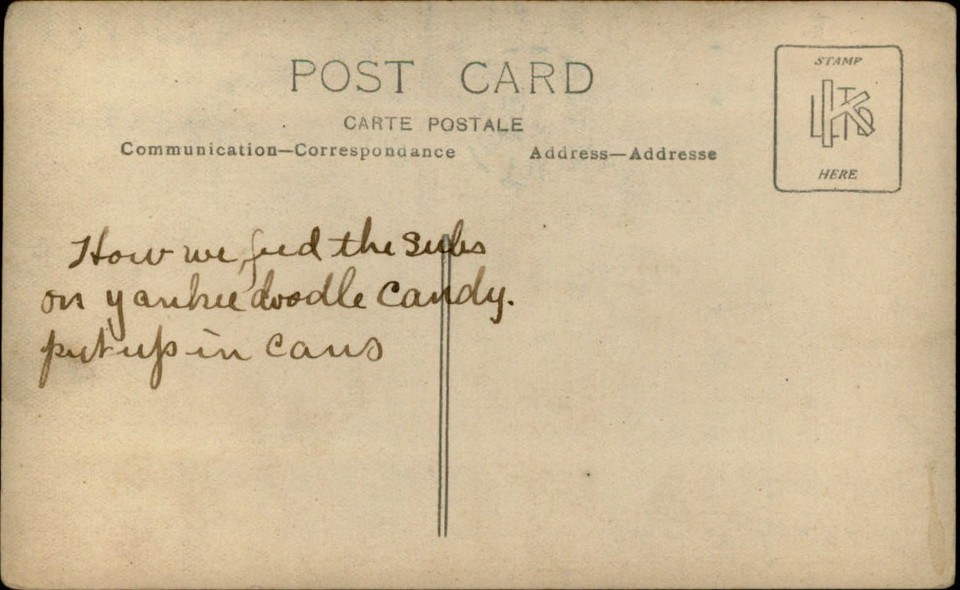 POST CARD
CARTE POSTALE
Communication—Correspondance
Address—Addresse
STAMP
HERE
How we feed the subs
on yankee doodle candy.
put up in cans